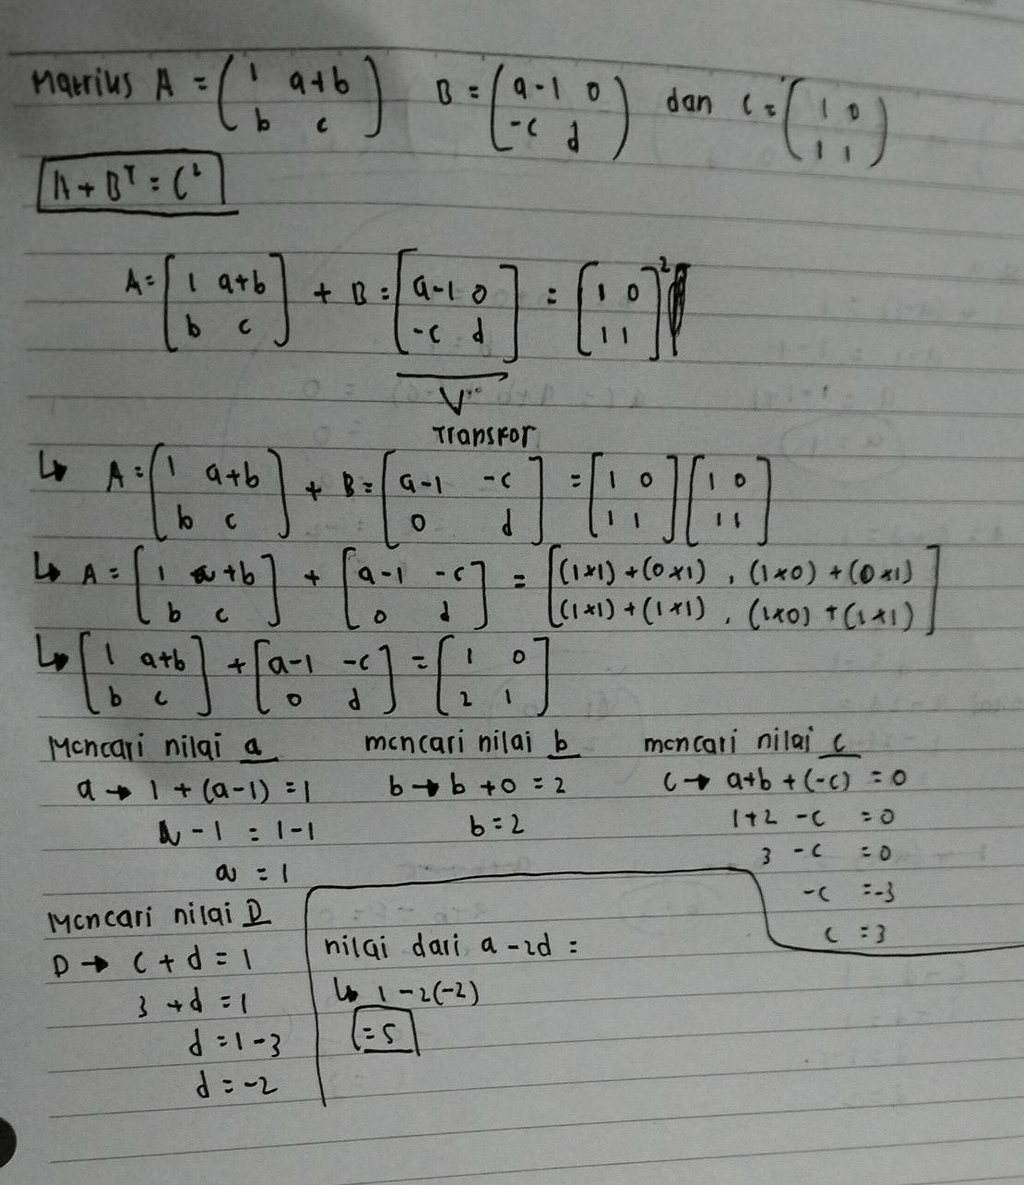 Matriks A = (1 a+b) B = (a-1 0) dan C = (1 0)
(b c) (-c d) (1 1)
A + Bᵀ = C²
A = [1 a+b] + B = [a-1 0] = [1 0]²
[b c] [-c d] [1 1]
Transfor
↳ A = [1 a+b] + B = [a-1 -c] = [1 0] [1 0]
[b c] [0 d] [1 1] [1 1]
↳ A = [1 a+b] + [a-1 -c] = [(1×1)+(0×1) , (1×0)+(0×1)]
[b c] [0 d] [(1×1)+(1×1) , (1×0)+(1×1)]
↳ [1 a+b] + [a-1 -c] = [1 0]
[b c] [0 d] [2 1]
Mencari nilai a
a → 1 + (a-1) = 1
a - 1 = 1-1
a = 1
mencari nilai b
b → b + 0 = 2
b = 2
mencari nilai c
c → a+b + (-c) = 0
1+2 -c = 0
3 -c = 0
-c = -3
c = 3
Mencari nilai D
D → c + d = 1
3 + d = 1
d = 1-3
d = -2
nilai dari a - 2d =
↳ 1 - 2(-2)
= 5